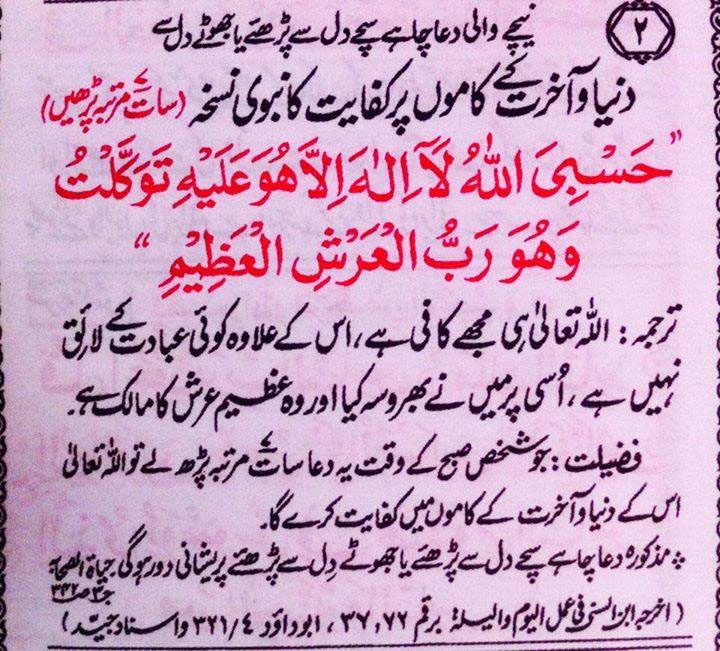 ۲
نیچے والی دعا چاہے سچے دل سے پڑھئے یا جھوٹے دل سے
دنیا و آخرت کے کاموں پر کفایت کا نبوی نسخہ (سات ۷ مرتبہ پڑھیں)
"حَسْبِیَ اللّٰهُ لَآ اِلٰهَ اِلَّا هُوَ عَلَیْهِ تَوَكَّلْتُ
وَهُوَ رَبُّ الْعَرْشِ الْعَظِیْمِ"
ترجمہ: اللہ تعالیٰ ہی مجھے کافی ہے، اس کے علاوہ کوئی عبادت کے لائق
نہیں ہے، اُسی پر میں نے بھروسہ کیا اور وہ عظیم عرش کا مالک ہے۔
فضیلت: جو شخص صبح کے وقت یہ دعا سات ۷ مرتبہ پڑھ لے تو اللہ تعالیٰ
اس کے دنیا و آخرت کے کاموں میں کفایت کرے گا۔
مذکورہ دعا چاہے سچے دل سے پڑھئے یا جھوٹے دِل سے پڑھئے پریشانی دور ہوگی حیاۃ الصحابۃ
(اخرجہ ابن السنی فی عمل الیوم واللیلۃ: برقم ۳۷,۷۲، ابوداؤد ۳۲۱/۴ واسنادہ جیّد)